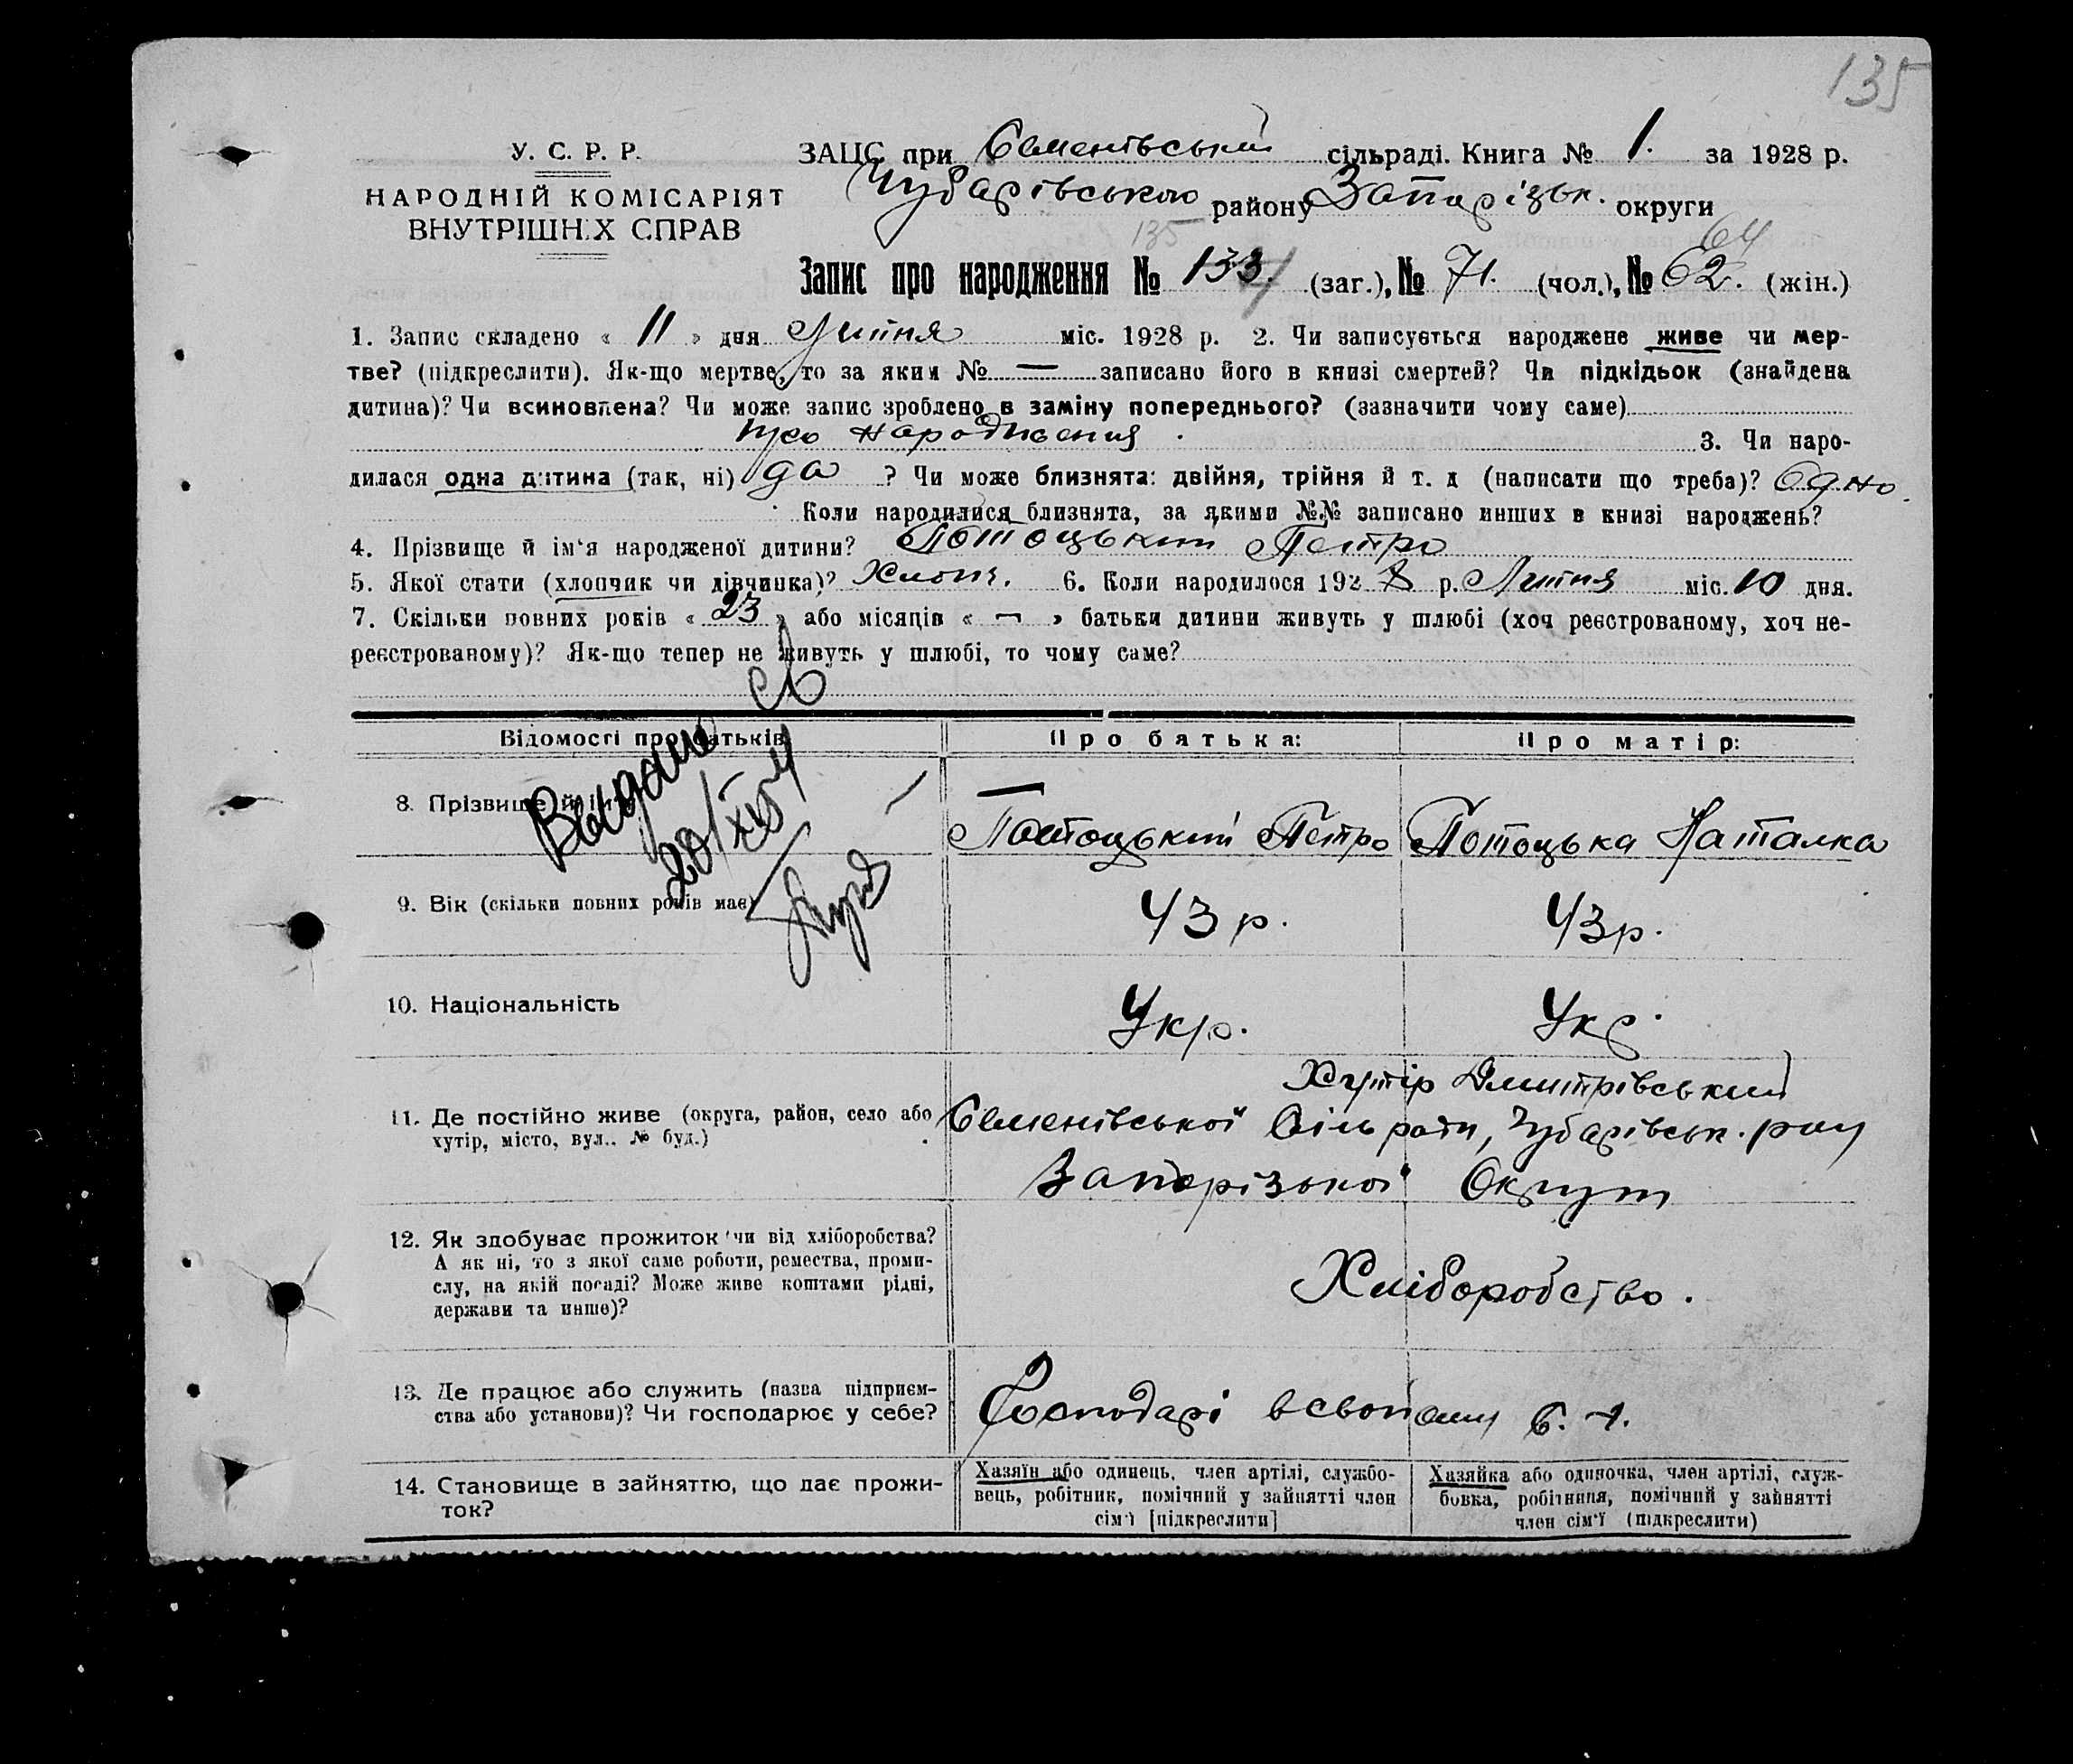 135
У. С. Р. Р.
НАРОДНІЙ КОМІСАРІЯТ
ВНУТРІШНІХ СПРАВ
ЗАЦС при Семенівській сільраді. Книга № 1. за 1928 р.
Чубарівського району Запорізьк. округи
135 64
Запис про народження № 133. (заг.), № 71. (чол.), № 62. (жін.)
1. Запис складено « 11 » дня Липня міс. 1928 р. 2. Чи записується народжене живе чи мер-
тве? (підкреслити). Як-що мертве, то за яким № — записано його в книзі смертей? Чи підкідьок (знайдена
дитина)? Чи всиновлена? Чи може запис зроблено в заміну попереднього? (зазначити чому саме)
про народження . 3. Чи наро-
дилася одна дитина (так, ні) да ? Чи може близнята: двійня, трійня й т. д (написати що треба)? Одно.
Коли народилися близнята, за якими №№ записано инших в книзі народжень?
4. Прізвище й ім'я народженої дитини? Потоцький Петро
5. Якої стати (хлопчик чи дівчинка)? Хлопч. 6. Коли народилося 1928 р. Липня міс. 10 дня.
7. Скільки повних років « 23 » або місяців « — » батьки дитини живуть у шлюбі (хоч реєстрованому, хоч не-
реєстрованому)? Як-що тепер не живуть у шлюбі, то чому саме?
Відомості про батьків Про батька: Про матір:
Выдано св
20/XII 54
8. Прізвище й ім'я Потоцький Петро Потоцька Наталка
9. Вік (скільки повних років має) 43 р. 43 р.
10. Національність Укр. Укр.
Хутір Дмитрівський
11. Де постійно живе (округа, район, село або Семенівської Сільради, Чубарівськ. р-ну
хутір, місто, вул.. № буд.) Запорізької Округи
12. Як здобуває прожиток чи від хліборобства?
А як ні, то з якої саме роботи, ремества, проми-
слу, на якій посаді? Може живе коштами рідні, Хліборобство.
держави та инше)?
13. Де працює або служить (назва підприєм-
ства або установи)? Чи господарює у себе? Господарі в свойому
14. Становище в зайняттю, що дає прожи-
ток?
Хазяїн або одинець, член артілі, службо-
вець, робітник, помічний у зайнятті член
сім'ї [підкреслити]
Хазяйка або одиночка, член артілі, служ-
бовка, робітниця, помічний у зайнятті
член сім'ї (підкреслити)